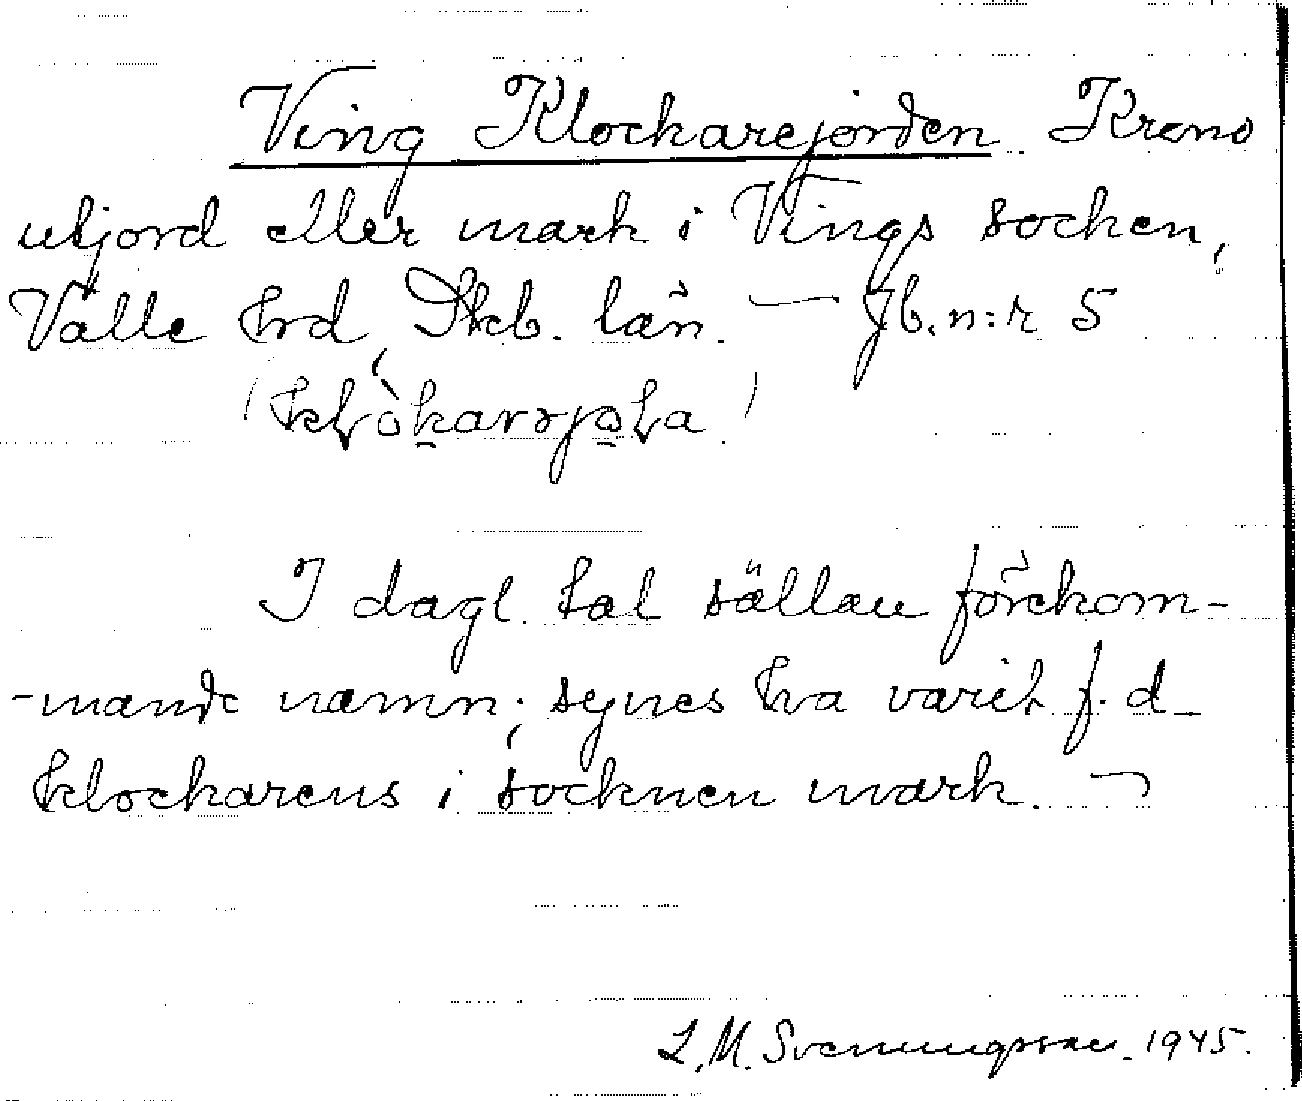 Ving Klockarejorden. Krono
utjord eller mark i Vings socken,
Valle hrd, Skb. län. — Jb. n:r 5
(klòkarəjoƚa)
I dagl. tal sällan förekom-
-mande namn; synes ha varit f. d.
klockarens i socknen mark. ¬
L. M. Svenungsson. 1945.